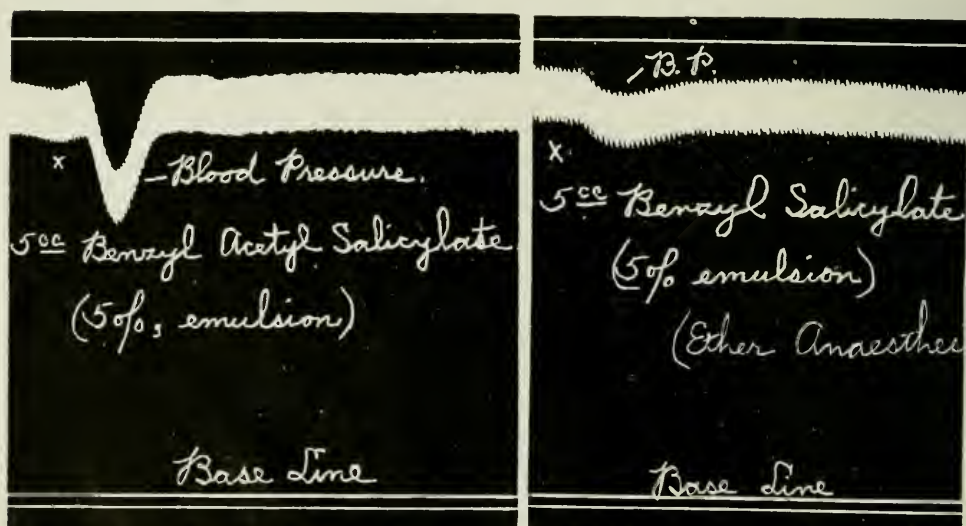 x
—Blood Pressure.
5cc Benzyl Acetyl Salicylate
(5%, emulsion)
Base Line
B. P.
x
5cc Benzyl Salicylate
(5% emulsion)
(Ether Anaesthe
Base Line